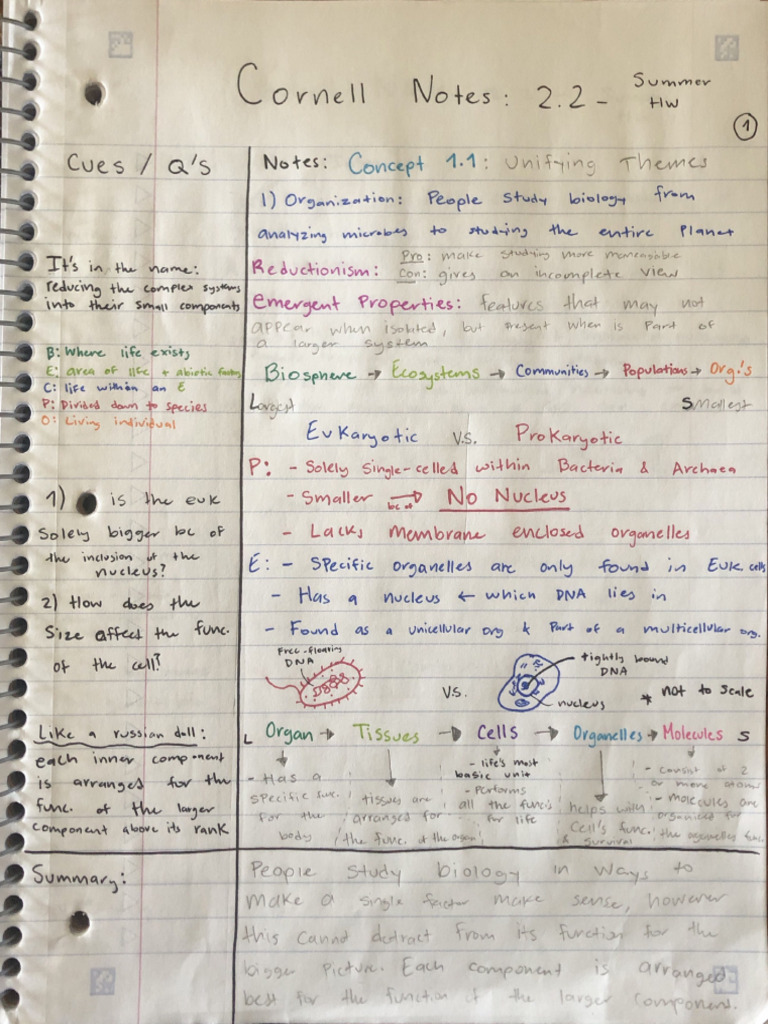 Cornell Notes: 2.2 - Summer HW
1
Cues / Q's
Notes: Concept 1.1: Unifying Themes
1) Organization: People study biology from
analyzing microbes to studying the entire Planet
It's in the name:
reducing the complex systems
into their small components
Reductionism: Pro: make studying more manageable
Con: gives an incomplete view
Emergent Properties: features that may not
appear when isolated, but present when is part of
a larger system
B: Where life exists
E: area of life + abiotic factors
C: life within an E
P: Divided down to species
O: Living individual
Biosphere → Ecosystems → Communities → Populations → Org.'s
Largest Smallest
Eukaryotic v.s. Prokaryotic
P: - Solely single-celled within Bacteria & Archaea
- Smaller bc of → No Nucleus
- Lacks membrane enclosed organelles
1) is the euk
Solely bigger bc of
the inclusion of the
nucleus?
2) How does the
Size affect the func.
of the cell?
E: - Specific organelles are only found in Euk. cells
- Has a nucleus ← which DNA lies in
- Found as a unicellular org & Part of a multicellular org.
free-floating
DNA
vs.
tightly bound
DNA
nucleus
* not to scale
Like a russian doll:
each inner component
is arranges for the
func. of the larger
component above its rank
L Organ → Tissues → Cells → Organelles → Molecules S
- Has a
specific func.
for the
body
tissues are
arranged for
the func. of the organ
- life's most
basic unit
- Performs
all the func's
for life
helps with
Cell's func.
& survival
- consist of 2
or more atoms
- molecules are
organized for
the organelles func.
Summary:
People study biology in ways to
make a single factor make sense, however
this cannot detract from its function for the
bigger picture. Each component is arranged
best for the function of the larger component.